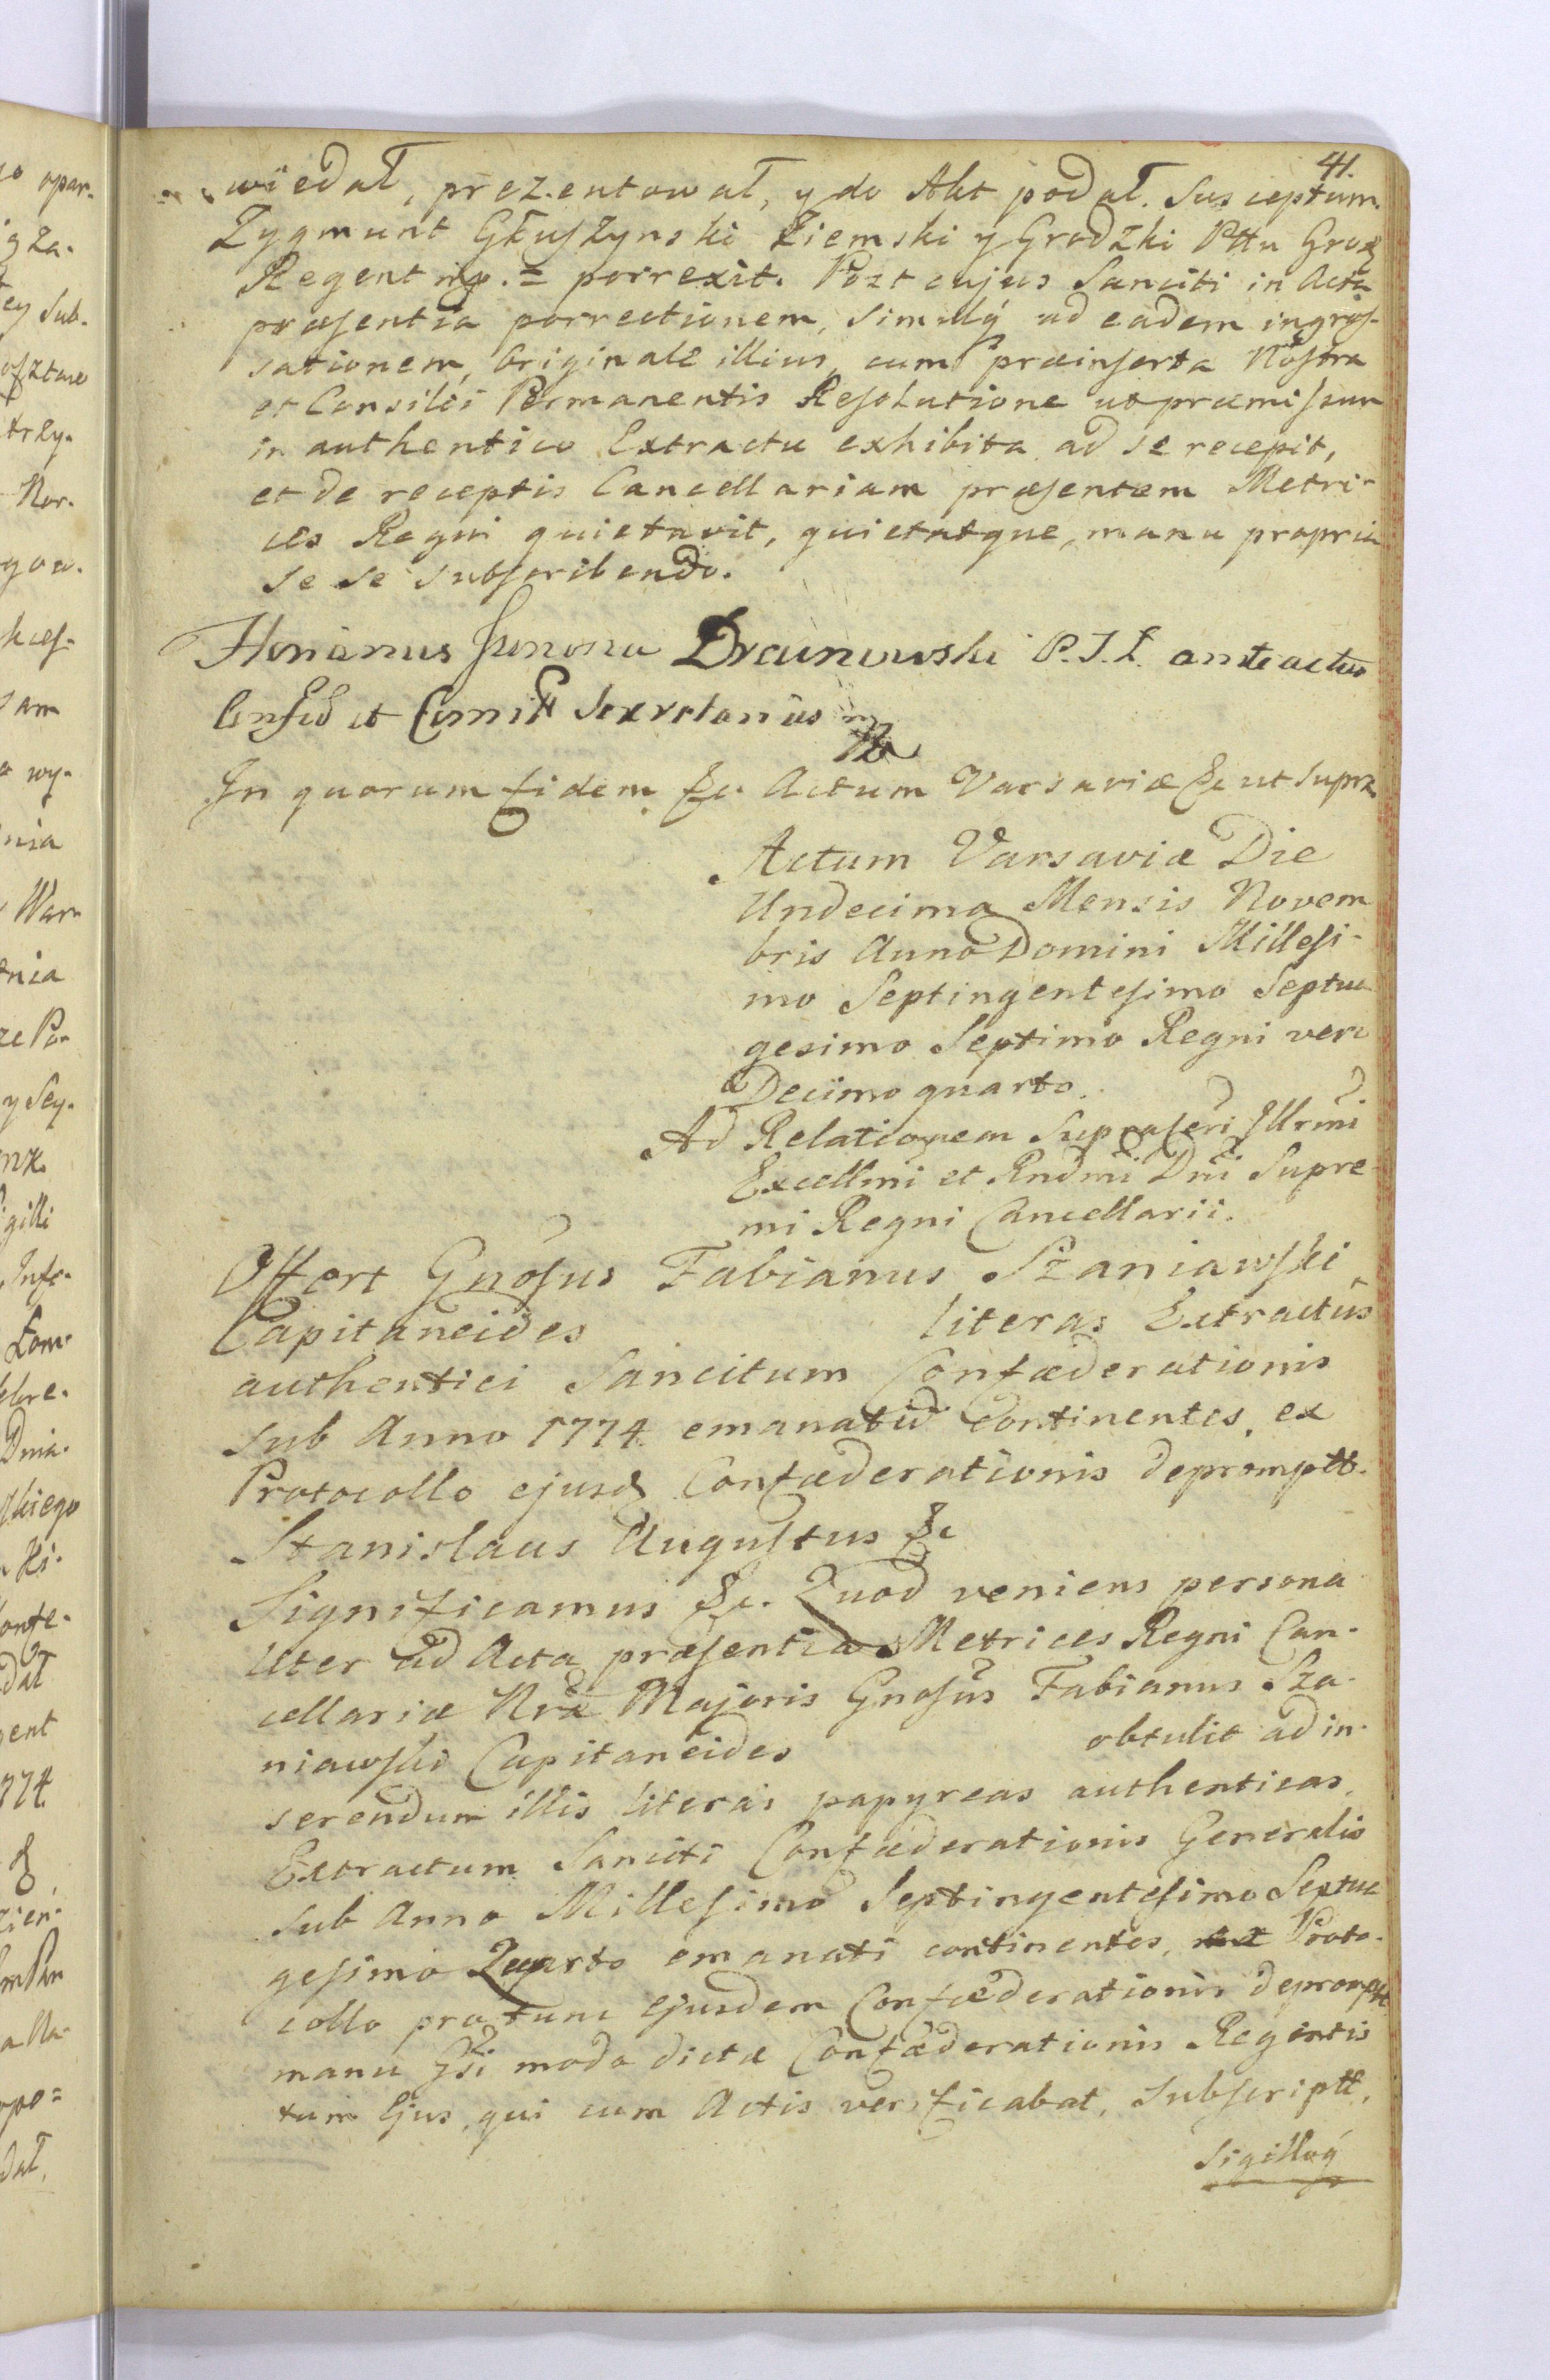 41.
wiedał, prezentował, y do Akt podał. Susceptum.
Zygmunt Głuszynski Ziemski y Grodzki Pttu Grodz
Regent mp. = porrexit. Post cujus Sanciti in Acta
præsentia porrectionem, simulq́ ad eadem ingros-
sationem, Originale illius, cum præinserta Nostra
et Consilii Permanentis Resolutione ut præmissum
in authentico Extractu exhibita ad se recepit,
et de receptis Cancellariam præsentem Metri-
ces Regni quietavit, quietatque, manu propria
se se subscribendo.
Florianus Junosza Drewnowski P.J.Ł. anteactus
Consid et Commiss Secretarius mp
In quorum fidem &c. Actum Varsaviæ &c ut supra
Actum Varsaviæ Die
Undecima Mensis Novem
bris Anno Domini Millesi-
mo Septingentesimo Septua
gesimo Septimo Regni vero
Decimo quarto.
Ad Relationem Suprascri Illrmi
Excellmi et Rndmi Dni Supre
mi Regni Cancellarii.
Offert Gnosus Fabianus Szaniawski
Capitaneides literas Extractus
authentici Sancitum Confæderationis
sub Anno 1774 emanatu Continentes, ex
Protocollo ejusd Confæderationis depromptt.
Stanislaus Augustus &c
Significamus &c. Quod veniens persona
liter ad Acta præsentia Metrices Regni Can-
cellariæ Nræ Majoris Gnosus Fabianus Sza-
niawski Capitaneides obtulit ad in-
serendum illis literas papyreas authenticas,
Extractum Sanciti Confæderationis Generalis
sub Anno Millesimo Septingentesimo Septua
gesimo Quarto emanati continentes, ex Proto-
collo protunc Ejusdem Confæderationis deprompt
manu Gsi modo dictæ Confæderationis Regentis
tum Ejus, qui cum Actis verificabat, subscriptt,
sigilloq́